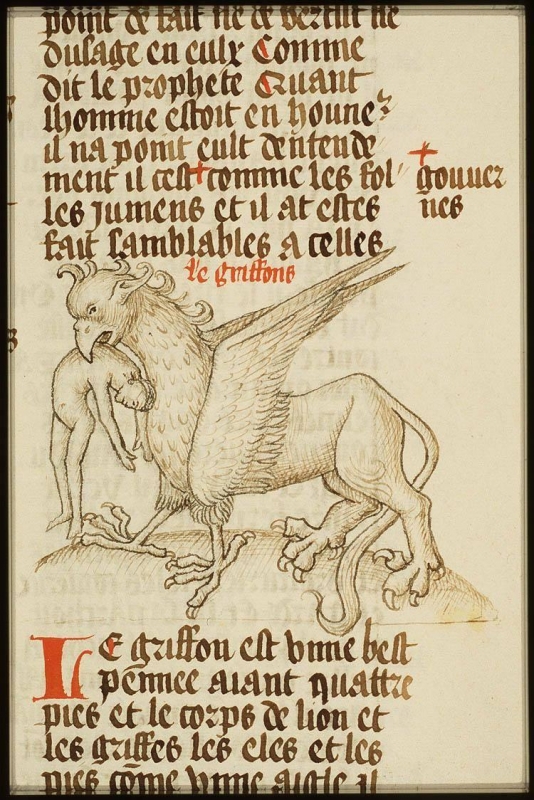 point de fait ne de vertut ne
dusage en eulx Comme
dit le prophete Quant
lhomme estoit en houne
il na point eult dentende
ment il cest + comme les fol
les jumens et il at estes
fait samblables a celles
+
gouuer
nes
le griffons
LE griffon est vnne best
pennee aiant quattre
pies et le corps de lion et
les griffes les eles et les
pies come vnne aigle il